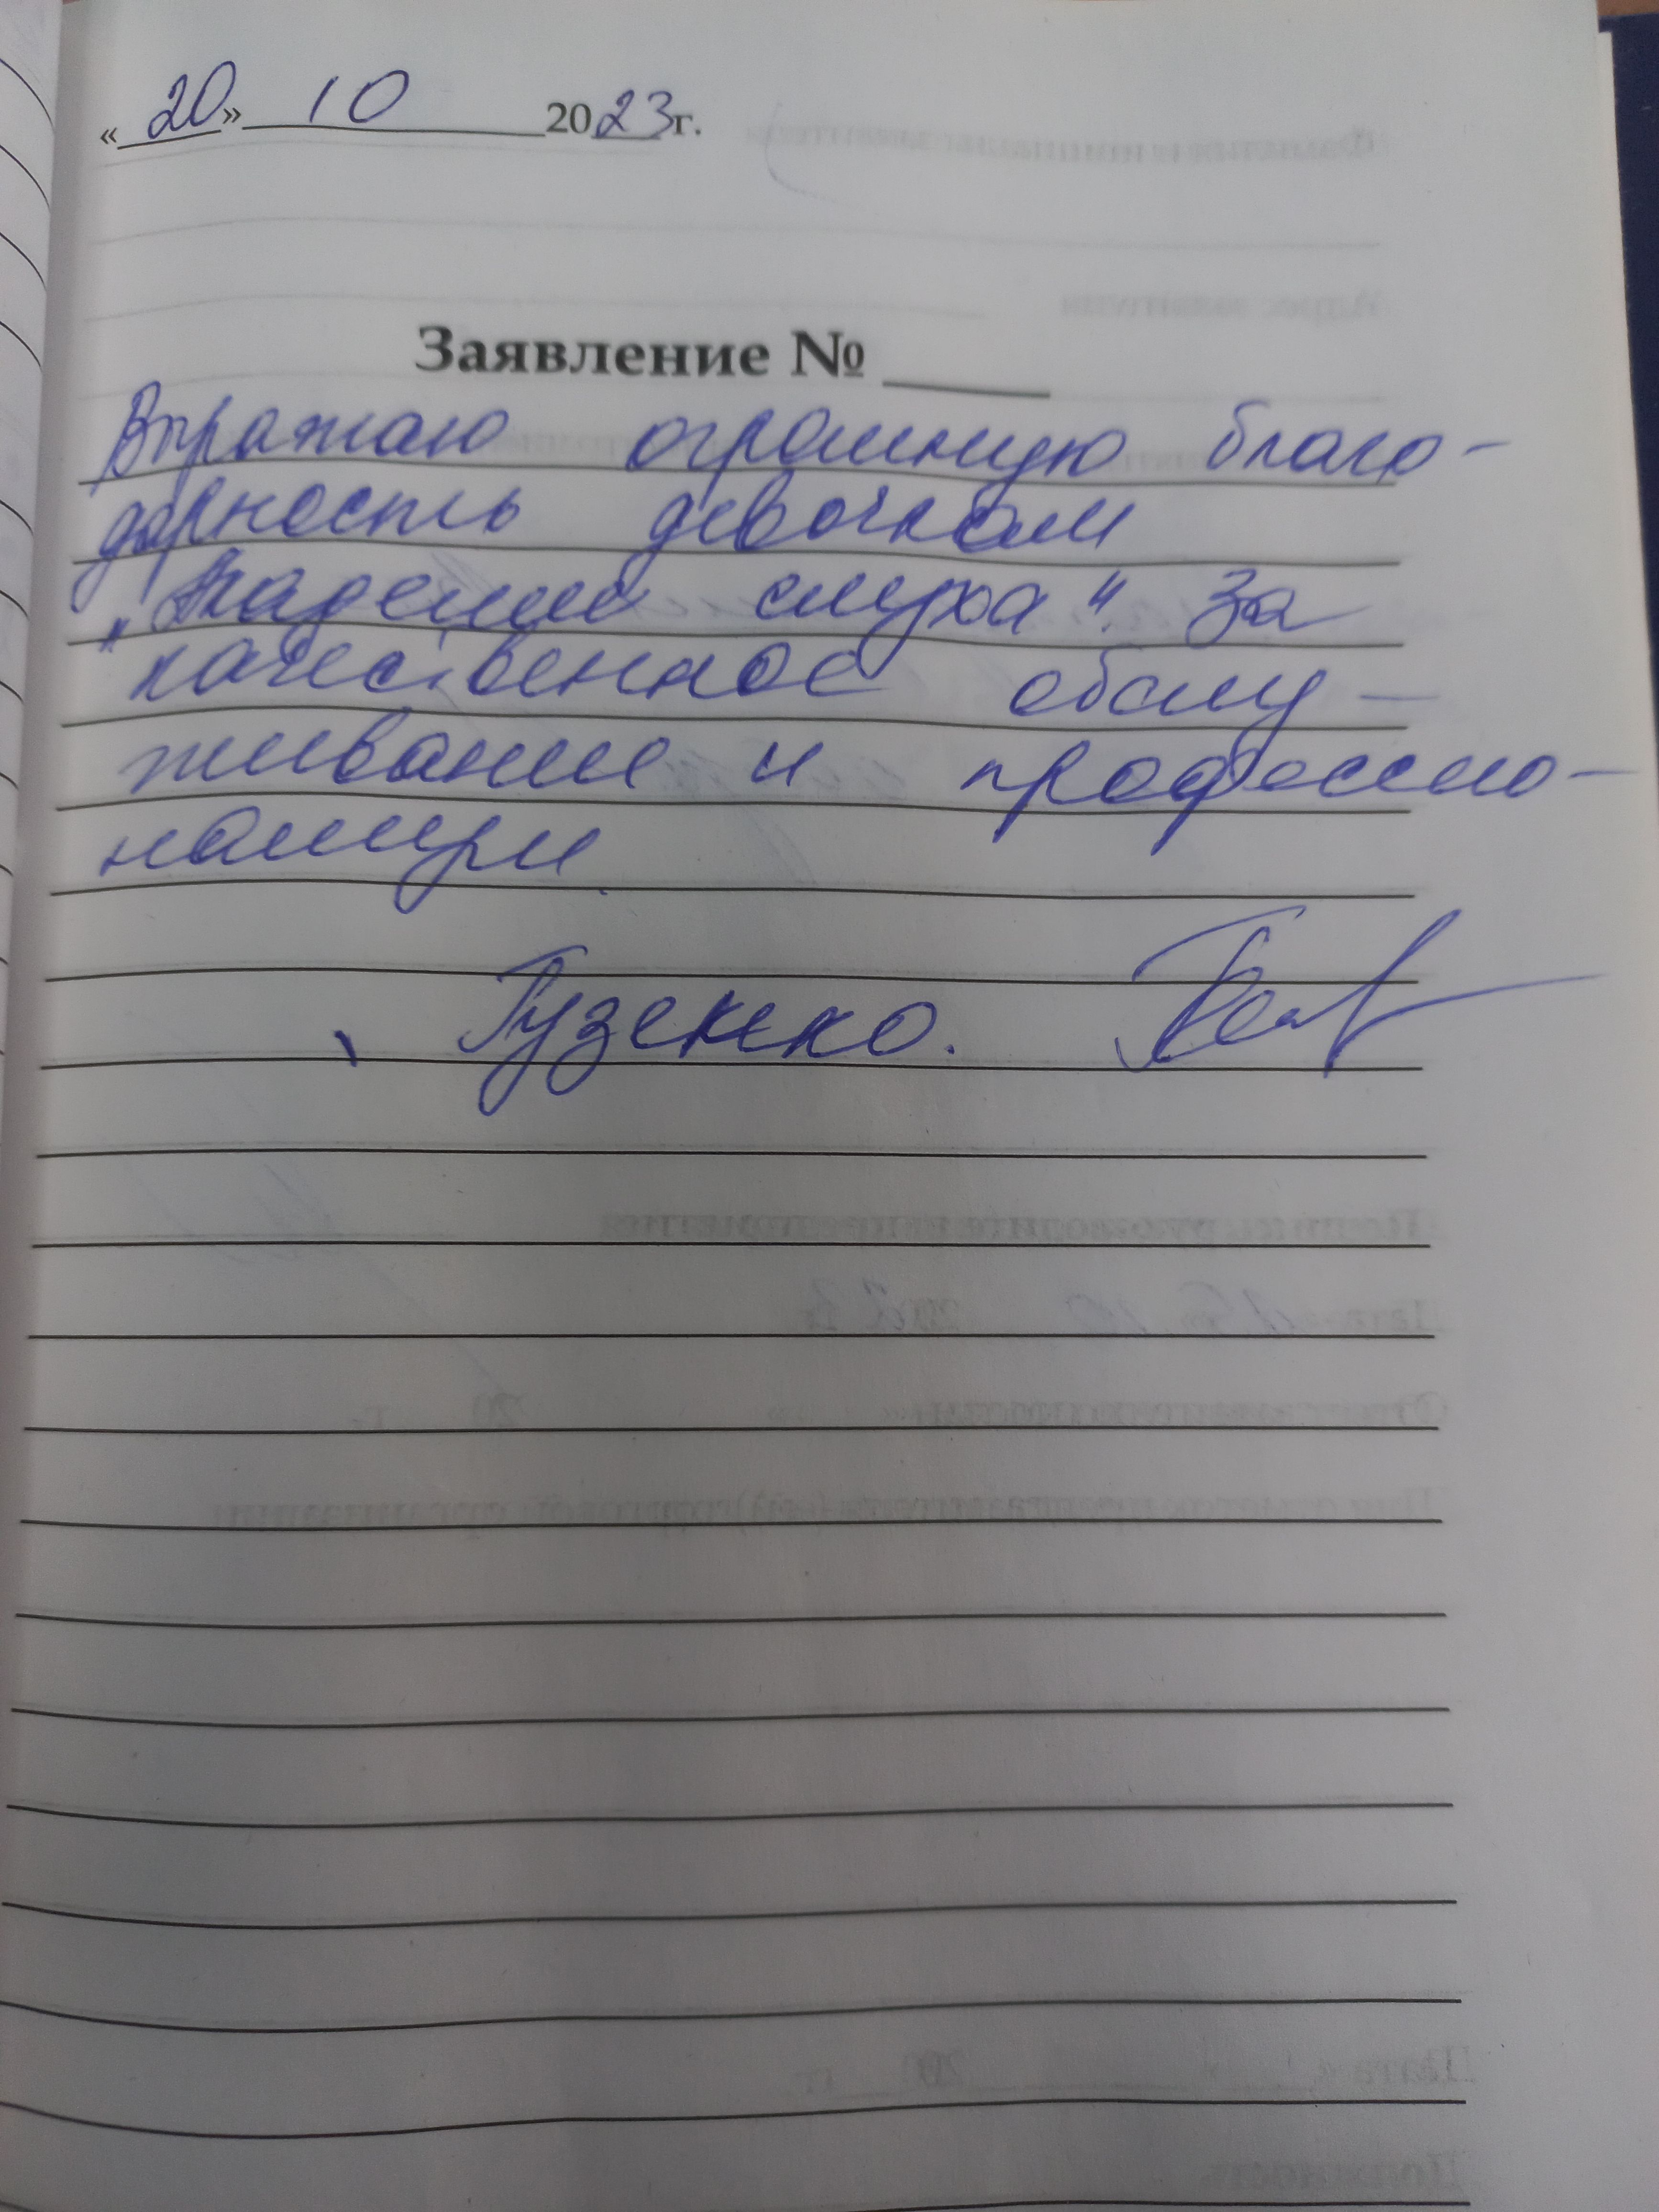 «20» 10 2023г.
Заявление № ____
Выражаю огромную благо-
дарность девочкам
"Академия слуха" за
качественное обслу-
живание и профессио-
нализм
Гузенко.